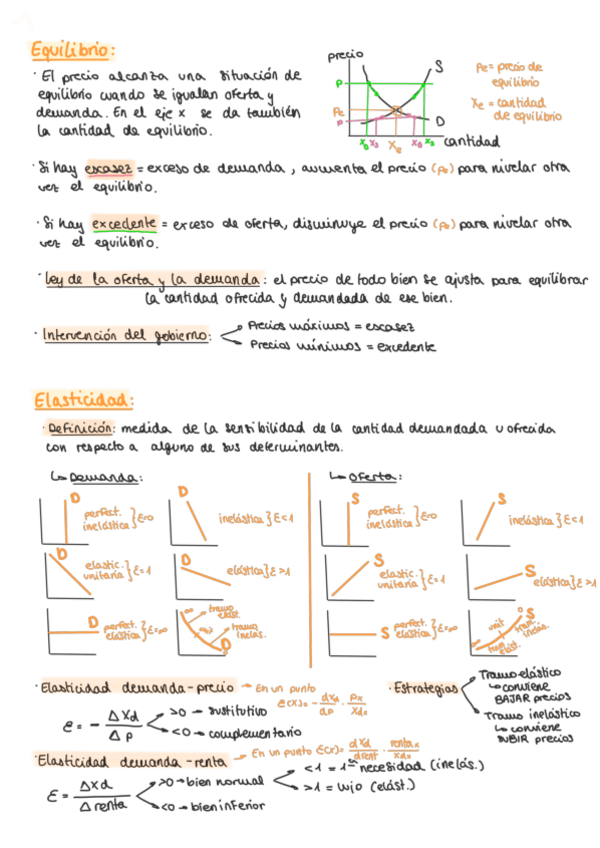 Equilibrio:
· El precio alcanza una situación de
equilibrio cuando se igualan oferta y
demanda. En el eje x se da también
la cantidad de equilibrio.
precio
S
P
Pe
P
D
Xe
cantidad
Pe = precio de
equilibrio
Xe = cantidad
de equilibrio
· Si hay escasez = exceso de demanda, aumenta el precio (Pe) para nivelar otra
vez el equilibrio.
· Si hay excedente = exceso de oferta, disminuye el precio (Pe) para nivelar otra
vez el equilibrio.
· Ley de la oferta y la demanda: el precio de todo bien se ajusta para equilibrar
la cantidad ofrecida y demandada de ese bien.
· Intervención del gobierno:
Precios máximos = escasez
Precios mínimos = excedente
Elasticidad:
· Definición: medida de la sensibilidad de la cantidad demandada u ofrecida
con respecto a alguno de sus determinantes.
↳ Demanda:
D
perfect. inelástica } Ɛ=0
D
inelástica } Ɛ<1
D
elastic. unitaria } Ɛ=1
D
elástica } Ɛ>1
D
perfect. elástica } Ɛ=∞
tramo elás.
tramo inelás.
D
↳ Oferta:
S
perfect. inelástica } Ɛ=0
S
inelástica } Ɛ<1
S
elastic. unitaria } Ɛ=1
S
elástica } Ɛ>1
S
perfect. elástica } Ɛ=∞
unit
tram. inelás.
tram. elást.
S
· Elasticidad demanda-precio → En un punto
Ɛ(x)= - dXd/dp · Px/Xdx
Ɛ = - ΔXd / ΔP
>0 → sustitutivo
<0 → complementario
· Estrategias
Tramo elástico
↳ conviene
BAJAR precios
Tramo inelástico
↳ conviene
SUBIR precios
· Elasticidad demanda-renta → En un punto Ɛ(x)= dXd/drent · rentax/Xdx
Ɛ = ΔXd / Δ renta
>0 → bien normal
<1 = 1ª necesidad (inelás.)
>1 = lujo (elást.)
<0 → bien inferior